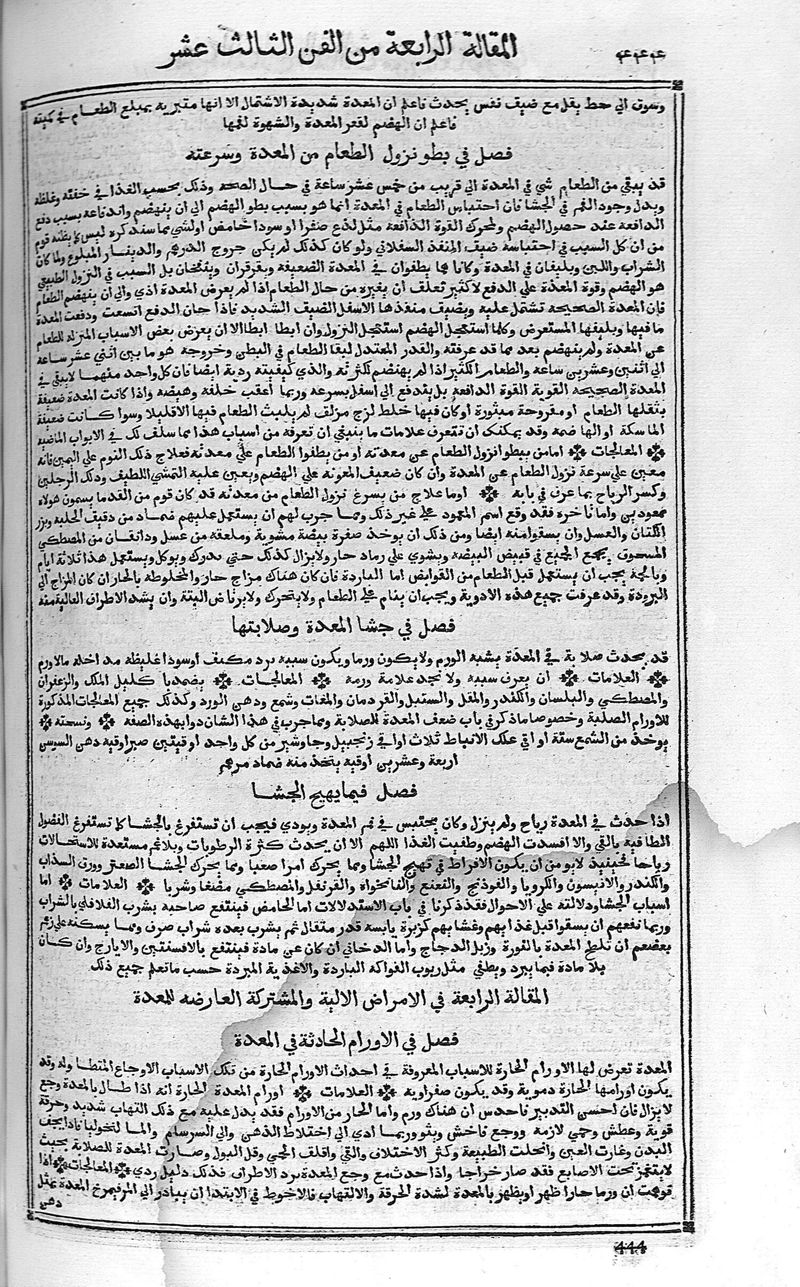 المقالة الرابعة من الفن الثالث عشر
٤٤٤
وسوف الي حط بقل مع ضيف نفس يحدث فاعلم ان المعدة شديدة الاشتمال الا انها متبرية بمبلغ الطعام في كميته
فاعلم ان الهضم لقعر المعدة والشهوة لفمها
فصل في بطو نزول الطعام من المعدة وسرعته
قد يبقي من الطعام شي في المعدة الي قريب من خمس عشر ساعة في حال الصحه وذلك بحسب الغذا في خفته وغلظه
ويدل وجود الثمر في الجشا فان احتباس الطعام في المعدة انما هو بسبب بطو الهضم الي ان ينهضم واندفاعه بسبب دفع
الدافعة عند حصول الهضم وتحرك القوة الدافعة مثل لذع صفرا او سودا حامض اولشي مما سنذكره ليس كما يظنه قوم
من ان كل السبب في احتباسه ضيف المنفذ السفلاني ولو كان كذلك لم يكن خروج الدرهم والدينار المبلوع ولما كان
الشراب واللبن ويلبثان في المعدة وكانا مما يطفوان في المعدة الضعيفة ويقرقران وينفخان بل السبب في النزول الطبيعي
هو الهضم وقوة المعدة علي الدفع لا كثير تعلف ان بغيره من حال الطعام اذا لم يعرض المعدة اذي والي ان ينهضم الطعام
فان المعدة الصحيحة تشتمل عليه ويضيف منفذها الاسفل الضيف الشديد فاذا حان الدفع اتسعت ودفعت المعدة
ما فيها وبليفها المستعرض وكلما استعجل الهضم استعجل النزول وان ابطا ابطا الا ان يعرض بعض الاسباب المنزله للطعام
عن المعدة ولم ينهضم بعد مما قد عرفته والقدر المعتدل لبقا الطعام في البطن وخروجه هو ما بين اثني عشر ساعة
الي اثنين وعشرين ساعه والطعام الكثير اذا لم ينهضم لكثرته والذي كيفيته ردية ايضا فان كل واحد منهما لا يبقي في
المعدة الصحيحه القوية القوة الدافعة بل يندفع الي اسفل بسرعه وربما اعقب خلفه وهيضه واذا كانت المعدة ضعيفة
يثقلها الطعام او مقروحة مبثورة او كان فيها خلط لزج مزلف لم يلبث الطعام فيها الا قليلا وسوا كانت ضعيفة
الماسكة او الهاضمه وقد يمكنك ان تتعرف علامات ما ينبغي ان تعرفه من اسباب هذا مما سلف لك في الابواب الماضيه
المعالجات اما من يبطو نزول الطعام عن معدته او من يطفوا الطعام علي معدته فعلاج ذلك النوم علي اليمين فانه
معين علي سرعة نزول الطعام عن المعدة وان كان ضعيف المعونه علي الهضم ويعين عليه التمشي اللطيف ودلك الرجلين
وكسر الرياح بما عرف في بابه اوما علاج من يسرع نزول الطعام من معدته قد كان قوم من القدما يسمون هولاء
ممعودين واما تاخره فقد وقع اسم الممعود علي غير ذلك ومما جرب لهم ان يستعمل عليهم ضماد من دقيف الحلبه وبزر
الكتان والعسل وان يسقوا منه ايضا ومن ذلك ان يوخذ صفرة بيضة مشوية وملعقه من عسل ودانقان من المصطكي
المسحوق يجمع الجميع في قيض البيضه ويشوي علي رماد حار ولا يزال كذلك حتي يدرك ويوكل ويستعمل هذا ثلاثة ايام
وبالجملة يجب ان يستعمل قبل الطعام من القوابض اما الباردة فان كان هناك مزاج حار والمخلوطة بالحار ان كان المزاج الي
البرودة وقد عرفت جميع هذه الادوية ويجب ان ينام علي الطعام ولا يتحرك ولا يرتاض البتة وان يشد الاطراف العاليه منه
فصل في جشا المعدة وصلابتها
قد يحدث صلابة في المعدة يشبه الورم ولا يكون ورما ويكون سببه برد مكثف او سودا غليظه مداخله مالاورم
العلامات ان يعرف سببه ولا تجد علامة ورمه المعالجات يضمد باكليل الملك والزعفران
والمصطكي والبلسان والكندر والمقل والسنبل والقردمان والمغات وشمع ودهن الورد وكذلك جميع المعالجات المذكورة
للاورام الصلبة وخصوصا ما ذكر في باب ضعف المعدة للصلابة ومما جرب في هذا الشان دوا بهذه الصفه ونسخته
يوخذ من الشمع ستة اواقي علك الانباط ثلاث اواقي زنجبيل وجاوشير من كل واحد اوقيتين صبر اوقيه دهن السوسن
اربعة وعشرين اوقيه يتخذ منه ضماد مرهم
فصل فيما يهيج الجشا
اذا حدث في المعدة رياح ولم ينزل وكان يحتبس في فم المعدة ويوذي فيجب ان تستفرغ بالجشا كما تستفرغ الفضول
الطافيه بالقي والا افسدت الهضم وطفيت الغذا اللهم الا ان يحدث كثرة الرطوبات وبلاغم مستعدة للاستحالات
رياحا فحينيذ لا يومن ان يكون الافراط في تهيج الجشا ومما يحرك امرا صعبا ومما يحرك الجشا الصعتر وورق السذاب
والكندر والانيسون والكرويا والفوذنج والنعنع والنانخواة والقرنفل والمصطكي مضغا وشربا العلامات اما
اسباب الجشا ودلالته علي الاحوال فقد ذكرنا في باب الاستدلالات اما الحامض فينتفع صاحبه بشرب الفلافلي بالشراب
وربما نفعهم ان يسقوا قبل غذايهم وعشايهم كزبرة يابسه قدر مثقال ثم يشرب بعده شراب صرف ومما يسكنه علي زعم
بعضهم ان تلطخ المعدة بالنورة وزبل الدجاج واما الدخاني ان كان عن مادة فينتفع بالافسنتين والايارج وان كان
بلا مادة فبما يبرد ويطفي مثل ربوب الفواكه الباردة والاغذية المبردة حسب ما تعلم جميع ذلك
المقالة الرابعة في الامراض الالية والمشتركة العارضه للمعدة
فصل في الاورام الحادثة في المعدة
المعدة تعرض لها الاورام الحارة للاسباب المعروفة في احداث الاورام الحارة من تلك الاسباب الاوجاع المتطاوله وقد
يكون اورامها الحارة دموية وقد يكون صفراويه العلامات اورام المعدة الحارة انه اذا طال بالمعدة وجع
لا يزال فان احسن التدبير فاحدس ان هناك ورم واما الحار من الاورام فقد يدل عليه مع ذلك التهاب شديد وحرقة
قوية وعطش وحمي لازمة ووجع ناخس ونتو وربما ادي الي اختلاط الذهن والي السرسام والمالنخوليا فاذا نحف
البدن وغارت العين وانحلت الطبيعة وكثر الاختلاف والقي واقلف الحمي وقل البول وصارت المعدة للصلابة بحيث
لا ينغمز تحت الاصابع فقد صار خراجا واذا حدث مع وجع المعدة برد الاطراف فذلك دليل ردي المعالجات اذا
توهمت ان ورما حارا ظهر او يظهر بالمعدة لشدة الحرقة والالتهاب فالاحوط في الابتدا ان يبادر الي المرتبمرخ المعدة بمثل
دهن
444